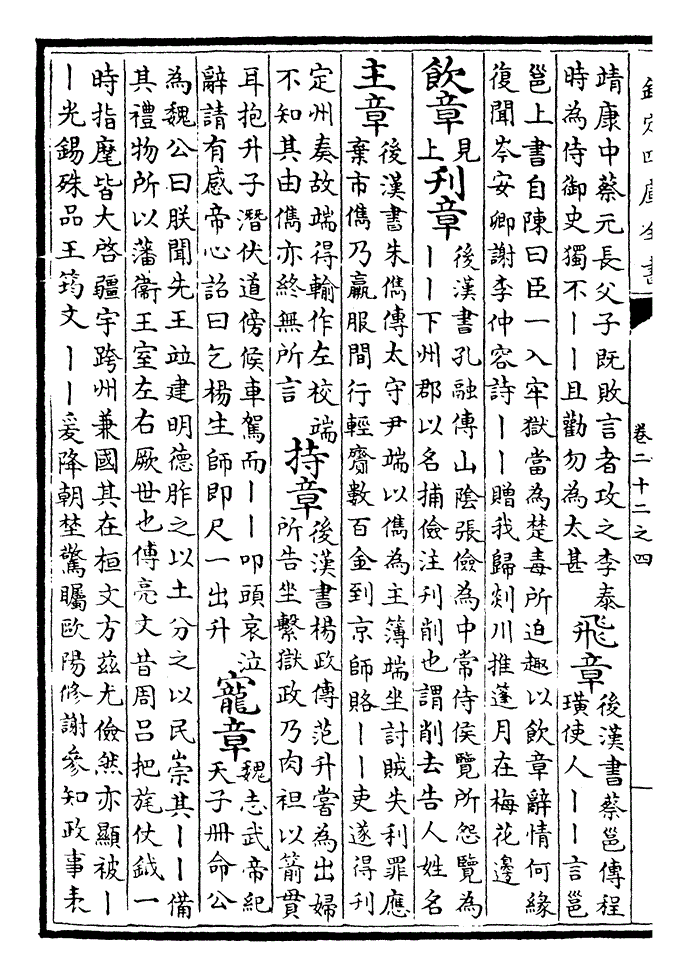 欽定四庫全書
卷二十二之四
靖康中蔡元長父子既敗言者攻之李泰
時為侍御史獨不丨丨且勸勿為太甚
飛章
後漢書蔡邕傳程
璜使人丨丨言邕
邕上書自陳曰臣一入牢獄當為楚毒所迫趣以飲章辭情何緣
復聞岑安卿謝李仲容詩丨丨贈我歸剡川推蓬月在梅花邊
飲章
見
上
刋章
後漢書孔融傳山陰張儉為中常侍侯覽所怨覽為
丨丨下州郡以名捕儉注刋削也謂削去告人姓名
主章
後漢書朱儁傳太守尹端以儁為主簿端坐討賊失利罪應
棄市儁乃羸服間行輕齎數百金到京師賂丨丨吏遂得刋
定州奏故端得輸作左校端
不知其由儁亦終無所言
持章
後漢書楊政傳范升嘗為出婦
所告坐繫獄政乃肉袒以箭貫
耳抱升子潛伏道傍候車駕而丨丨叩頭哀泣
辭請有感帝心詔曰乞楊生師即尺一出升
寵章
魏志武帝紀
天子冊命公
為魏公曰朕聞先王竝建明德胙之以土分之以民崇其丨丨備
其禮物所以藩衞王室左右厥世也傅亮文昔周呂把旄仗鉞一
時指麾皆大啓疆宇跨州兼國其在桓文方茲尤儉然亦顯被丨
丨光錫殊品王筠文丨丨爰降朝埜驚矚歐陽修謝參知政事表